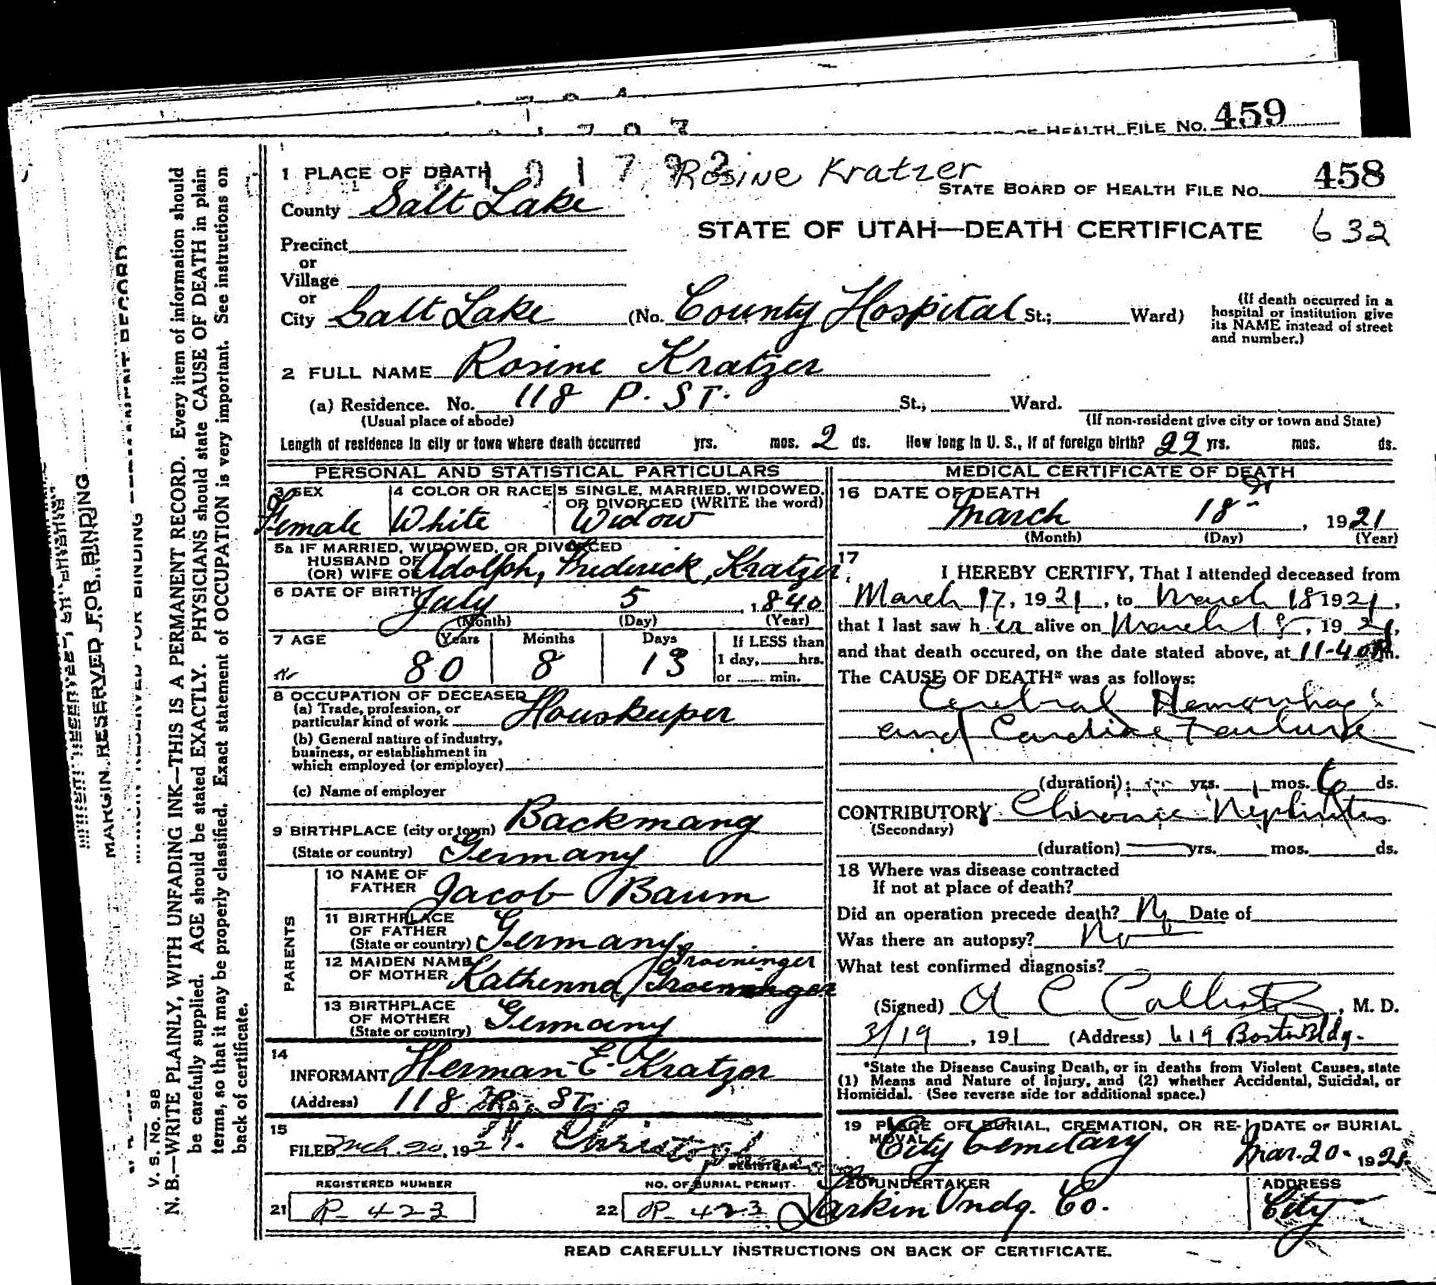 459
HEALTH FILE NO.
1 PLACE OF DEATH
Rosine Kratzer
STATE BOARD OF HEALTH FILE NO. 458
County Salt Lake
STATE OF UTAH—DEATH CERTIFICATE 632
Precinct
or
Village
or
City Salt Lake (No. County Hospital St.; Ward)
(If death occurred in a
hospital or institution give
its NAME instead of street
and number.)
2 FULL NAME Rosine Kratzer
(a) Residence. No. 118 P. ST. St., Ward.
(Usual place of abode) (If non-resident give city or town and State)
Length of residence in city or town where death occurred yrs. mos. 2 ds. How long in U. S., if of foreign birth? 22 yrs. mos. ds.
PERSONAL AND STATISTICAL PARTICULARS
3 SEX
Female
4 COLOR OR RACE
White
5 SINGLE, MARRIED, WIDOWED,
OR DIVORCED (WRITE the word)
Widow
5a IF MARRIED, WIDOWED, OR DIVORCED
HUSBAND OF
(OR) WIFE OF Adolph, Frederick, Kratzer
6 DATE OF BIRTH July 5, 1840
(Month) (Day) (Year)
7 AGE Years Months Days If LESS than
80 8 13 1 day, hrs.
or min.
8 OCCUPATION OF DECEASED
(a) Trade, profession, or
particular kind of work Houskeeper
(b) General nature of industry,
business, or establishment in
which employed (or employer)
(c) Name of employer
9 BIRTHPLACE (city or town) Backmang
(State or country) Germany
PARENTS
10 NAME OF
FATHER Jacob Baum
11 BIRTHPLACE
OF FATHER
(State or country) Germany
12 MAIDEN NAME Groeninger
OF MOTHER Katherina
13 BIRTHPLACE
OF MOTHER
(State or country) Germany
14
INFORMANT Herman E. Kratzer
(Address) 118 ST.
15
FILED Mch. 20, 192
REGISTRAR
REGISTERED NUMBER
21 R- 423
NO. OF BURIAL PERMIT
22 R- 423
MEDICAL CERTIFICATE OF DEATH
16 DATE OF DEATH
March 18, 1921
(Month) (Day) (Year)
17
I HEREBY CERTIFY, That I attended deceased from
March 17, 1921, to March 18 1921,
that I last saw h er alive on March 18, 1921,
and that death occured, on the date stated above, at 11-40 P.m.
The CAUSE OF DEATH* was as follows:
Cerebral Hemorrhage
and Cardiac Failure
(duration) yrs. mos. 6 ds.
CONTRIBUTORY Chronic Nephritis
(Secondary)
(duration) yrs. mos. ds.
18 Where was disease contracted
If not at place of death?
Did an operation precede death? No Date of
Was there an autopsy? No
What test confirmed diagnosis?
(Signed) A C Callister, M. D.
3/19, 191 (Address) 619 Boston Bldg.
*State the Disease Causing Death, or in deaths from Violent Causes, state
(1) Means and Nature of Injury, and (2) whether Accidental, Suicidal, or
Homicidal. (See reverse side for additional space.)
19 PLACE OF BURIAL, CREMATION, OR RE-
MOVAL
City Cemetary
DATE OF BURIAL
Mar. 20- 1921
20 UNDERTAKER
Larkin Undg. Co.
ADDRESS
City
READ CAREFULLY INSTRUCTIONS ON BACK OF CERTIFICATE.
MARGIN RESERVED FOR BINDING
V. S. NO. 98
N. B.—WRITE PLAINLY, WITH UNFADING INK—THIS IS A PERMANENT RECORD. Every item of information should
be carefully supplied. AGE should be stated EXACTLY. PHYSICIANS should state CAUSE OF DEATH in plain
terms, so that it may be properly classified. Exact statement of OCCUPATION is very important. See instructions on
back of certificate.